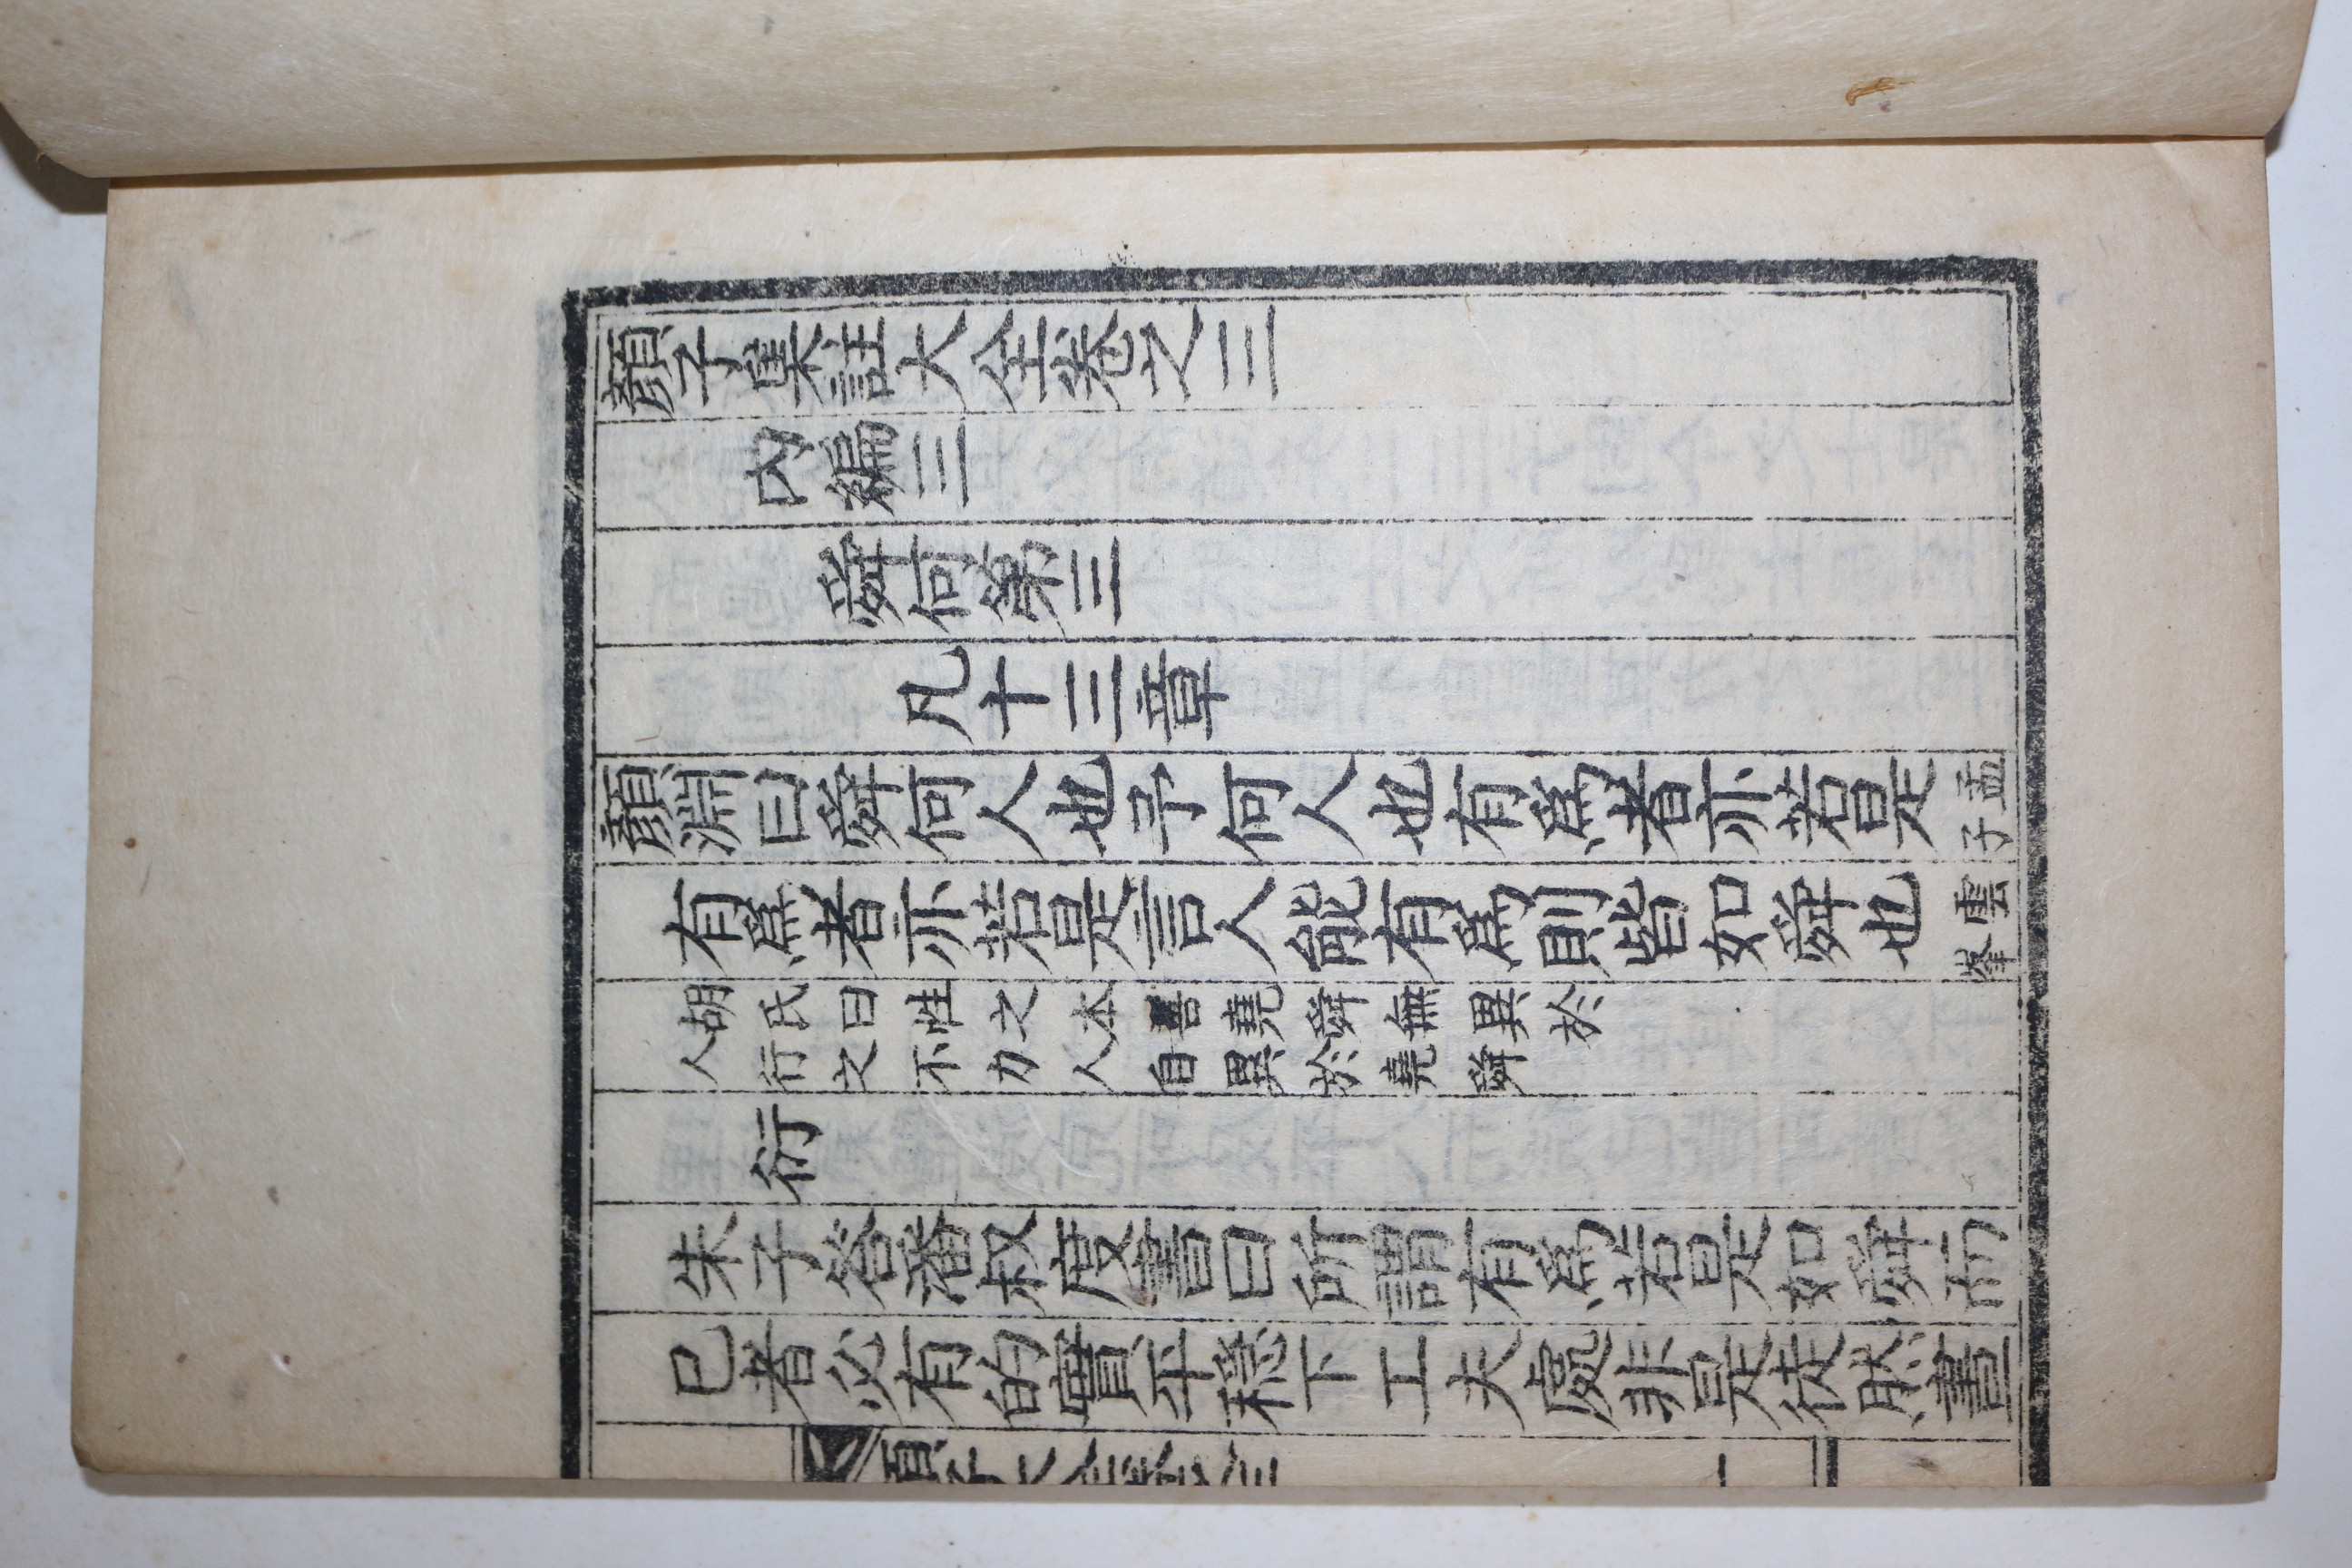 顏子集註大全卷之三
內編三
舜何第三
凡十三章
顏淵曰舜何人也予何人也有爲者亦若是孟子
有爲者亦若是言人能有爲則皆如舜也雲峯
胡氏曰性之本善堯舜無異於
人行之不力人自異於堯舜
衍
朱子答潘叔度書曰所謂有爲若是如舜而
已者必有的實平穩下工夫處非是徒然晝